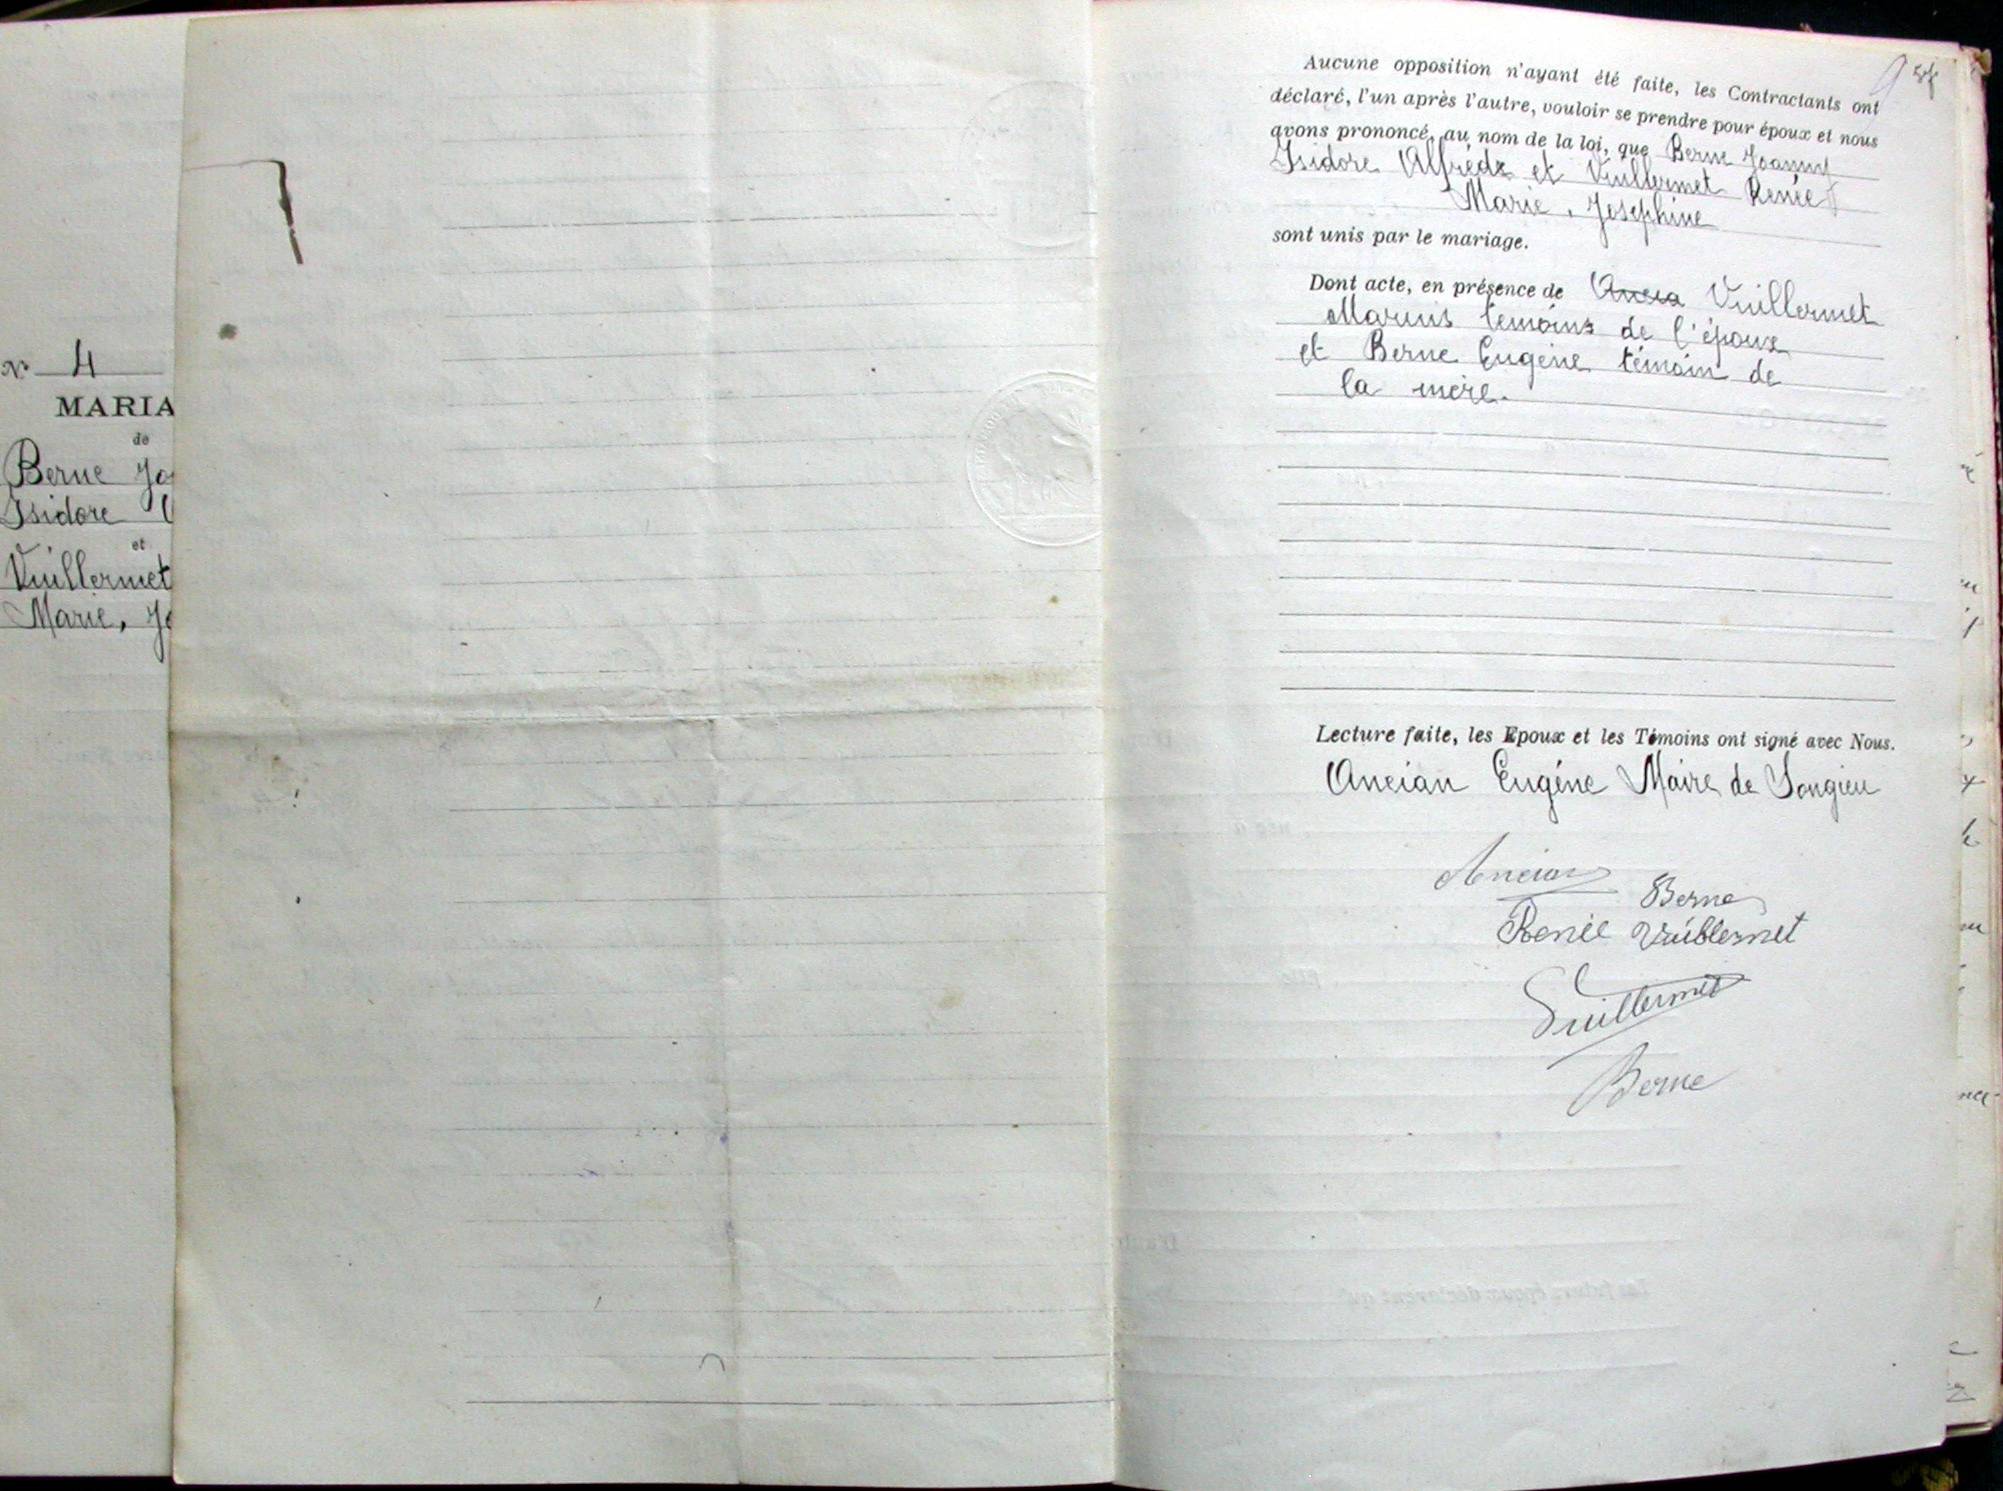 N° 4
MARIA
de
Berne Jo
Isidore
et
Vuillermet
Marie, Jo
Aucune opposition n'ayant été faite, les Contractants ont
déclaré, l'un après l'autre, vouloir se prendre pour époux et nous
avons prononcé, au nom de la loi, que Berne Joanny
Isidore Alfred et Vuillermet Renée
Marie, Josephine
sont unis par le mariage.
Dont acte, en présence de Ancia Vuillermet
Marius témoins de l'époux
et Berne Eugène témoin de
la mère.
Lecture faite, les Epoux et les Témoins ont signé avec Nous.
Ancian Eugène Maire de Songieu
Ancian
Berne
Renée Vuillermet
Vuillermet
Berne